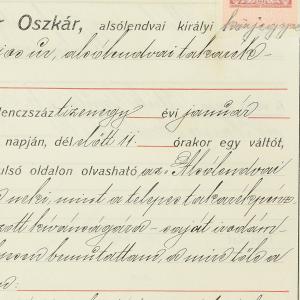 r Oszkár, alsólendvai királyi közjegyző
úr, alsólendvai takarék-
lenczszáz tizenegy évi január
napján, dél előtt 11 órakor egy váltót,
ulsó oldalon olvasható az "Alsólendvai
neki, mint a telepes takarékpénz
kívánságára saját irodám-
bemutattam, a mire tőle a